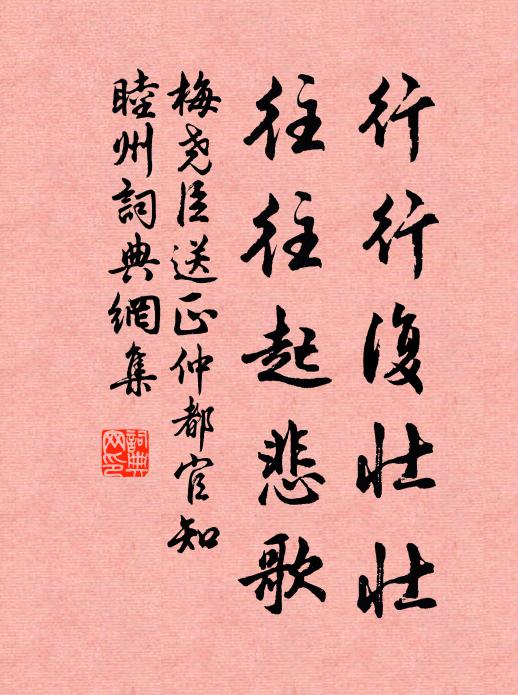 行行復壯壯
往往起悲歌
梅堯臣送正仲都官知
睦州詞典網集
詞典
网印